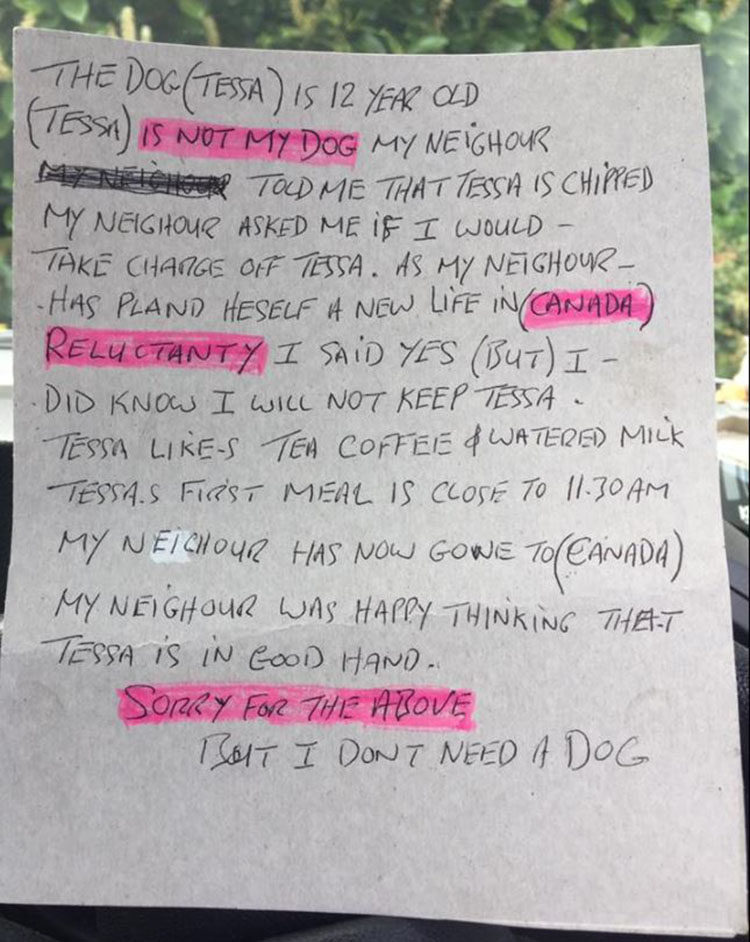 THE DOG (TESSA) IS 12 YEAR OLD
(TESSA) IS NOT MY DOG MY NEIGHOUR
MY NEIGHOUR TOLD ME THAT TESSA IS CHIPPED
MY NEIGHOUR ASKED ME IF I WOULD -
TAKE CHARGE OFF TESSA. AS MY NEIGHOUR -
- HAS PLAND HESELF A NEW LIFE IN (CANADA)
RELUCTANTY I SAID YES (BUT) I -
- DID KNOW I WILL NOT KEEP TESSA .
TESSA LIKE-S TEA COFFEE & WATERED MILK
TESSA.S FIRST MEAL IS CLOSE TO 11.30 AM
MY NEICHOUR HAS NOW GONE TO (CANADA)
MY NEIGHOUR WAS HAPPY THINKING THAT
TESSA IS IN GOOD HAND.
SORRY FOR THE ABOVE
BUT I DONT NEED A DOG